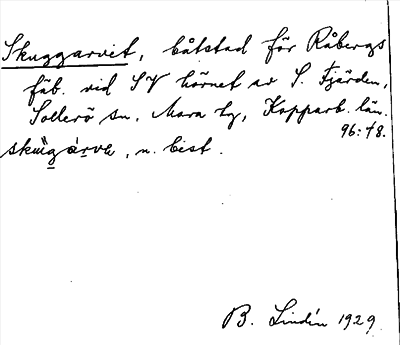 Skuggarvet, båtstad för Råbergs
fäb. vid SV hörnet av S. Fjärden,
Sollerö sn, Mora tg, Kopparb. län.
96:78.
skùgàrve, n. best.
B. Lindén 1929.